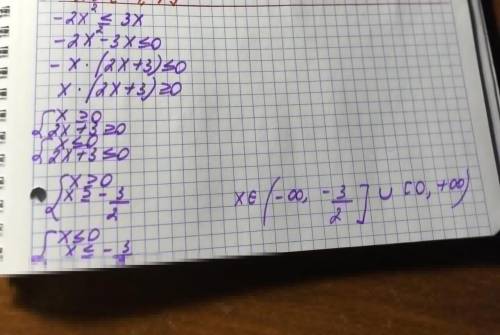 -2x² ≤ 3x
-2x²-3x≤0
-x·(2x+3)≤0
x·(2x+3)≥0
{x≥0
2x+3≥0
{x≤0
2x+3≤0
{x≥0
x≥-3/2
x∈(-∞, -3/2] ∪ [0, +∞)
{x≤0
x≤-3/2